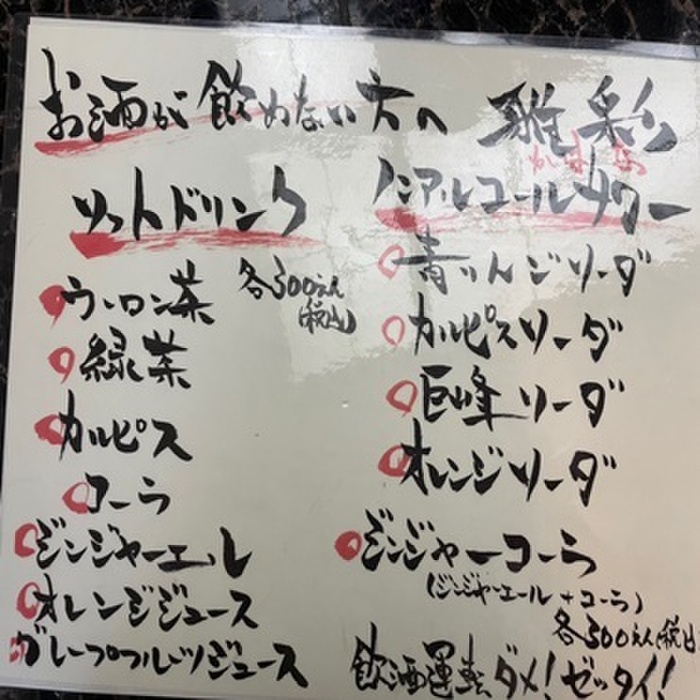 お酒が飲めない方へ
雅彩
ソフトドリンク
各500えん
(税込)
ウーロン茶
緑茶
カルピス
コーラ
ジンジャーエール
オレンジジュース
グレープフルーツジュース
ノンアルコールサワー
青りんごソーダ
カルピスソーダ
巨峰ソーダ
オレンジソーダ
ジンジャーコーラ
(ジンジャーエール+コーラ)
各500えん(税込)
飲酒運転ダメ!ゼッタイ!